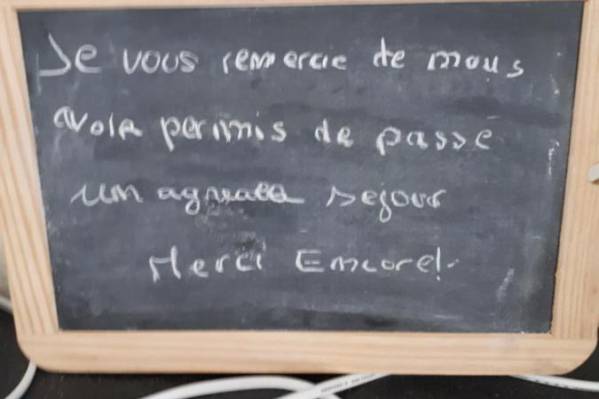 Je vous remercie de mous
avoir permis de passe
un agreable sejour
Merci Encore!.